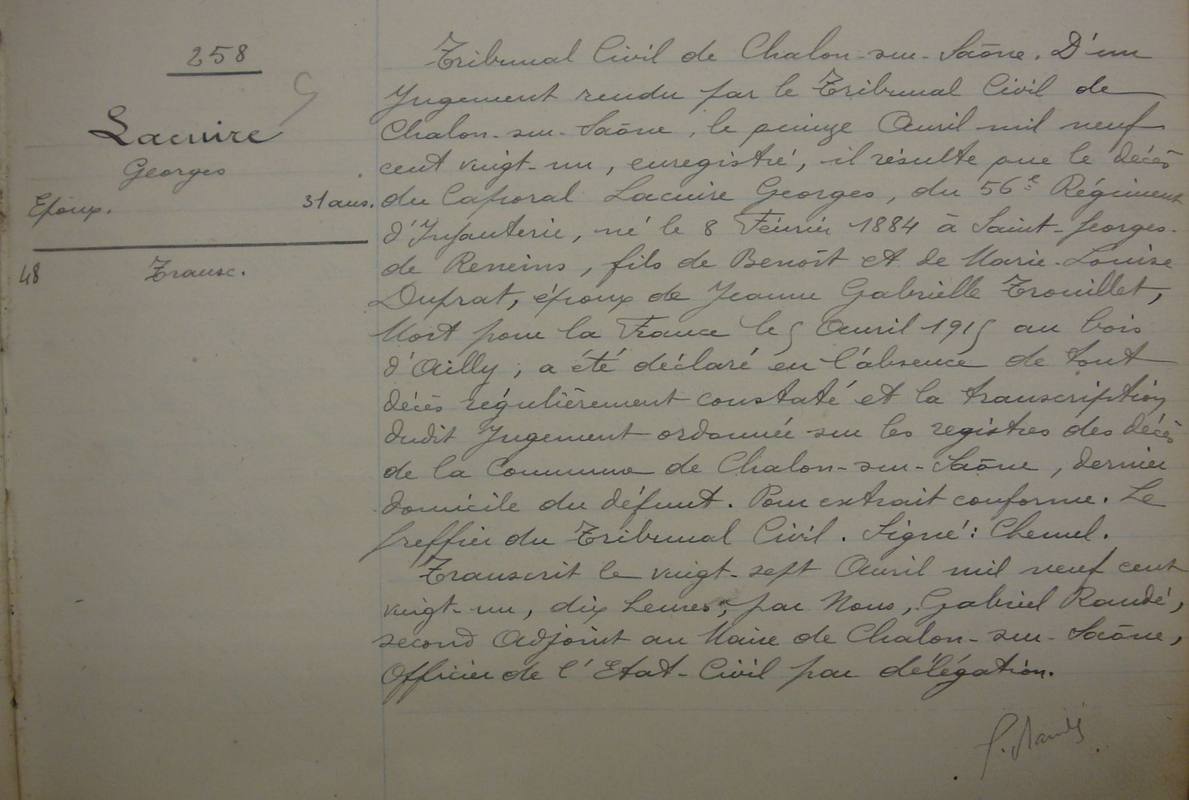 258
Lacuire
Georges
Epoux. 31 ans.
48 Transc.
Tribunal Civil de Chalon-sur-Saône. D'un
Jugement rendu par le Tribunal Civil de
Chalon-sur-Saône, le quinze Avril mil neuf
cent vingt-un, enregistré, il résulte que le décès
du Caporal Lacuire Georges, du 56e Régiment
d'Infanterie, né le 8 Février 1884 à Saint-Georges-
de Reneins, fils de Benoît et de Marie-Louise
Duprat, époux de Jeanne Gabrielle Trouillet,
Mort pour la France le 5 Avril 1915 au bois
d'Ailly, a été déclaré en l'absence de tout
décès régulièrement constaté et la transcription
dudit Jugement ordonnée sur les registres des décès
de la Commune de Chalon-sur-Saône, dernier
domicile du défunt. Pour extrait conforme. Le
Greffier du Tribunal Civil. Signé: Chemel.
Transcrit le vingt-sept Avril mil neuf cent
vingt-un, dix heures, par Nous, Gabriel Randé,
second Adjoint au Maire de Chalon-sur-Saône,
Officier de l'Etat-Civil par délégation.
G. Randé